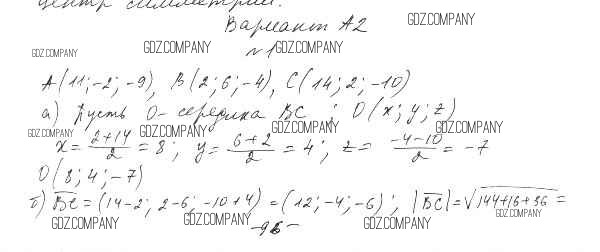 центр симметрии.
Вариант А2
GDZ.COMPANY
GDZ.COMPANY
№1
GDZ.COMPANY
GDZ.COMPANY
A(11; -2; -9), B(2; 6; -4), C(14; 2; -10)
а) Пусть O - середина BC ; O(x; y; z)
GDZ.COMPANY GDZ.COMPANY GDZ.COMPANY GDZ.COMPANY
x = (2+14)/2 = 8; y = (6+2)/2 = 4; z = (-4-10)/2 = -7
O(8; 4; -7)
б) BC = (14-2; 2-6; -10+4) = (12; -4; -6); |BC| = √144+16+36 =
GDZ.COMPANY GDZ.COMPANY GDZ.COMPANY GDZ.COMPANY
-96-